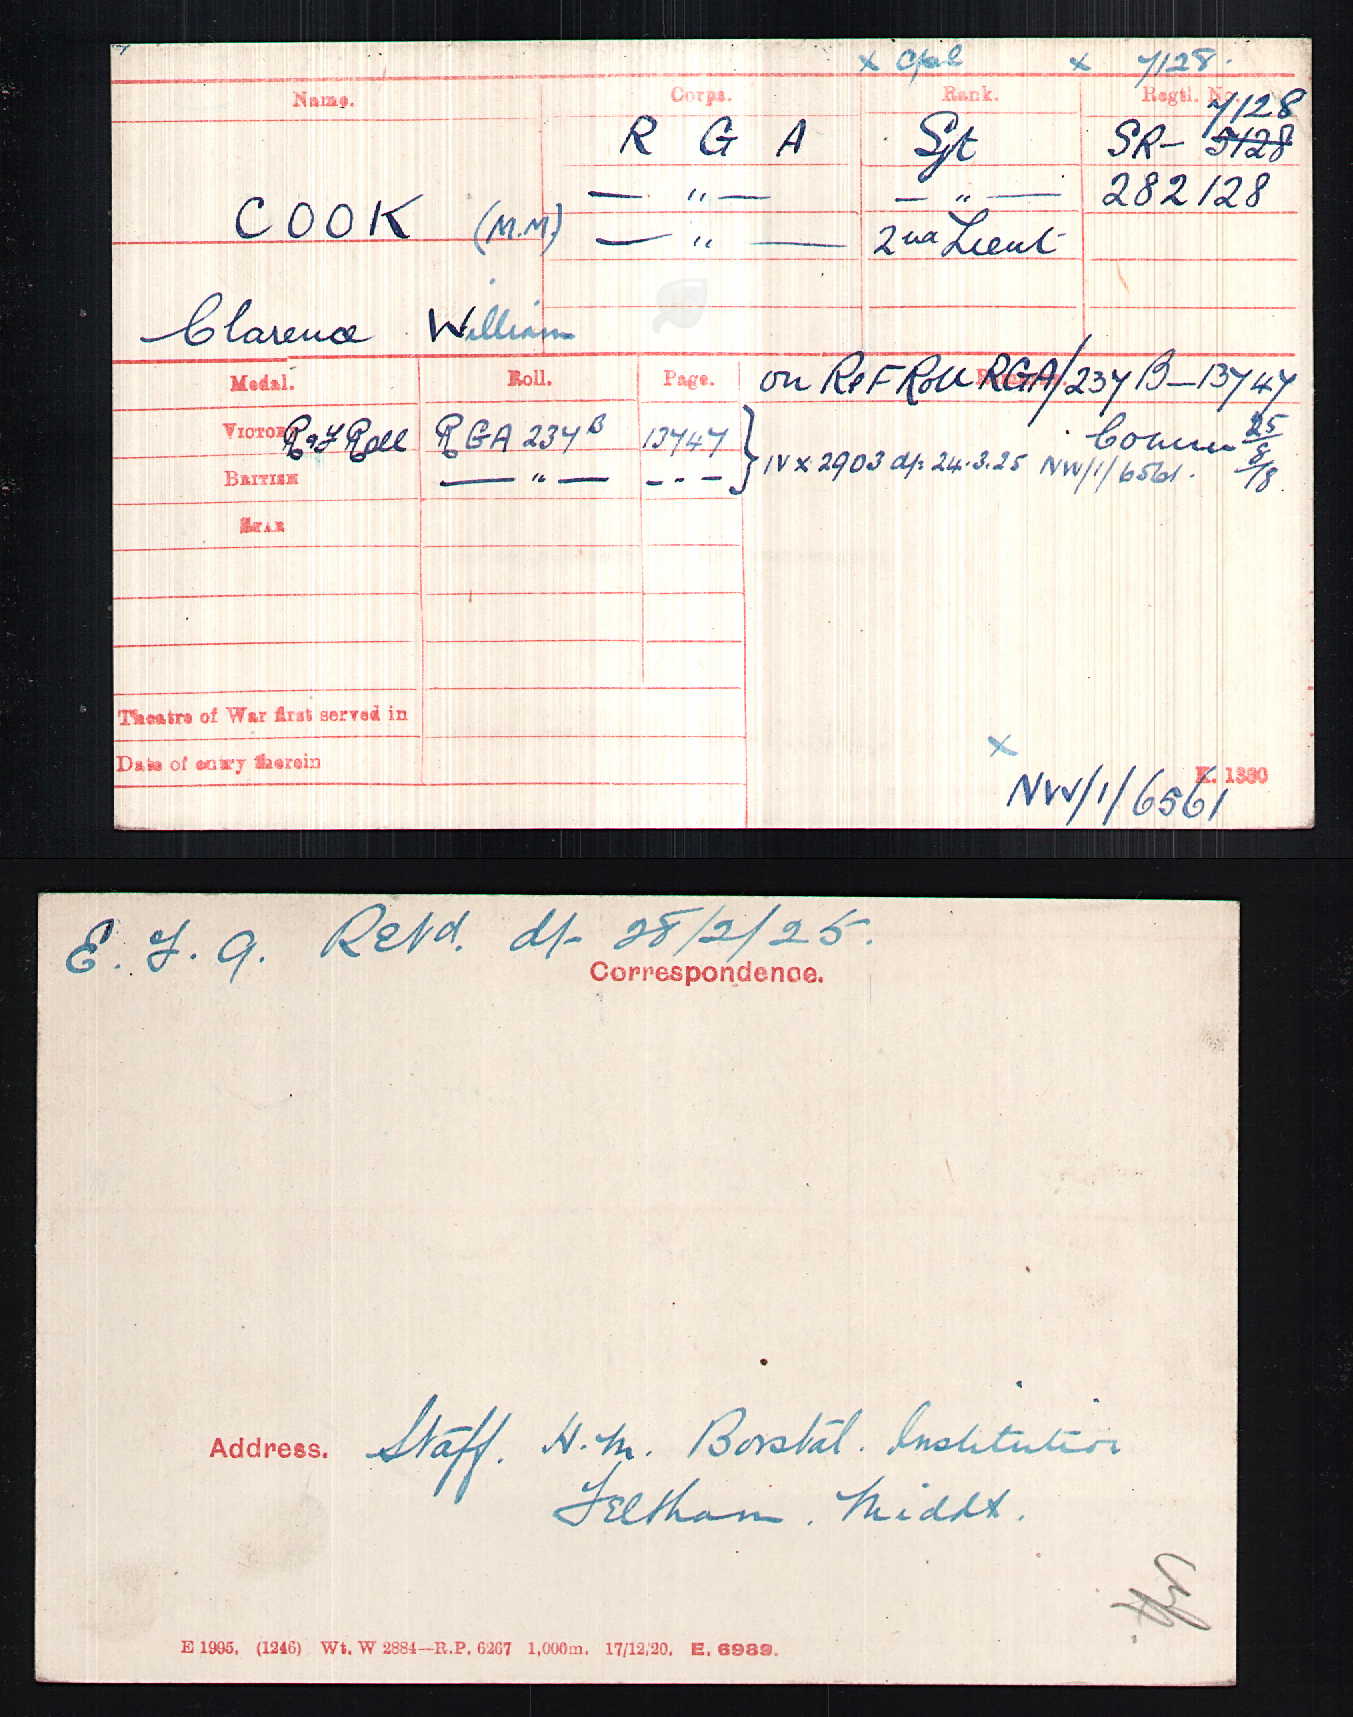 x Cpl x 7128.
Name. Corps. Rank. Regtl. No.
7128
R G A Sjt SR- 5128
— " — — " — 282128
COOK (M.M) — " — 2nd Lieut
Clarence William
Medal. Roll. Page. on ReF Roll RGA/237B-13747
VICTORY R&F Roll RGA 237B 13747 Commn 25/8/18
BRITISH — " — — " — } IVx 2903 d/: 24.3.25 NW/1/6561.
STAR
Theatre of War first served in
Date of entry therein
x
K. 1380
NW/1/6561
E. F. 9. Retd. d/- 28/2/25.
Correspondence.
Address. Staff. H.M. Borstal. Institution
Feltham. Middx.
E 1995. (1246) Wt. W 2884—R.P. 6267 1,000m. 17/12/20. E. 6989.